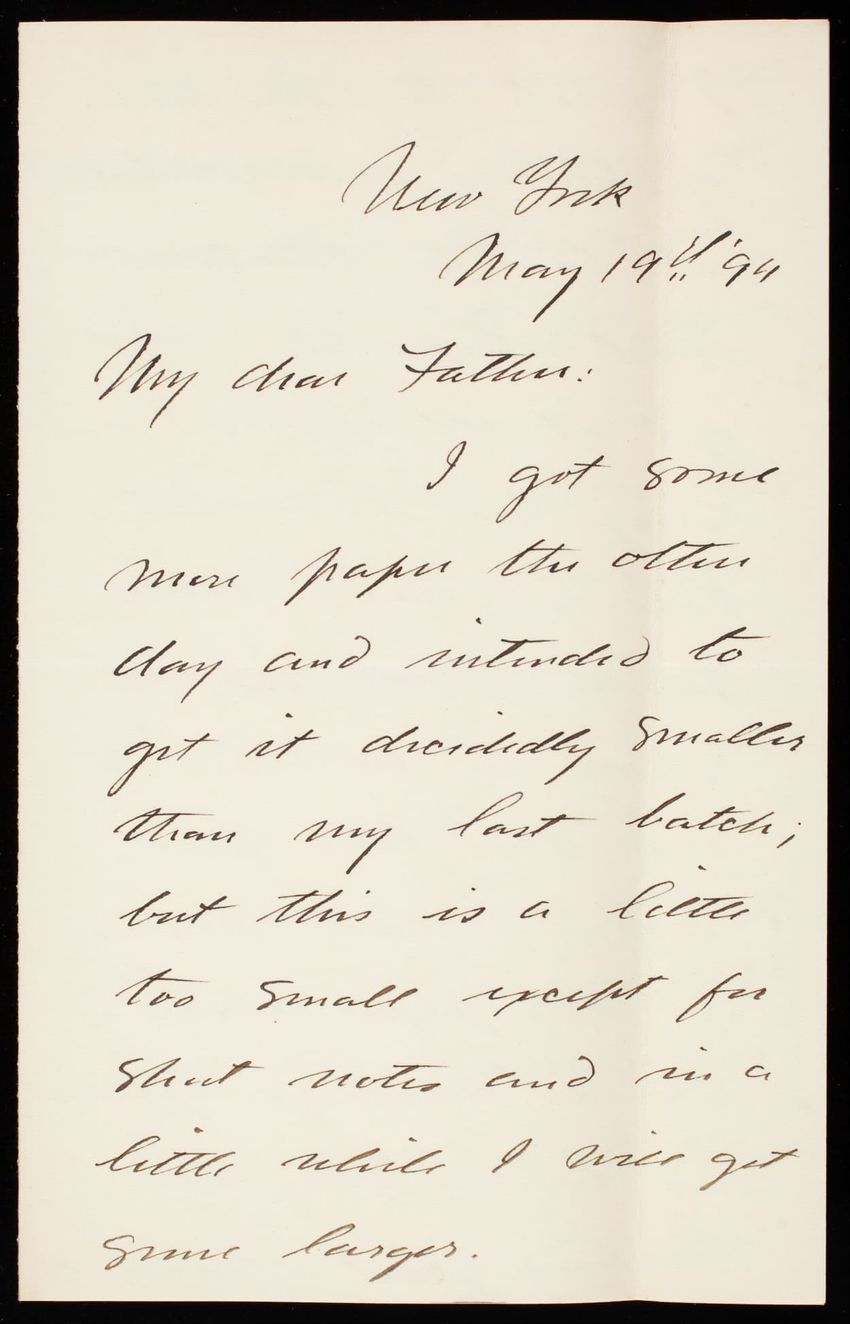 New York
May 19th '94
My dear Father:
I got some
more paper the other
day and intended to
get it decidedly smaller
than my last batch;
but this is a little
too small except for
short notes and in a
little while I will get
some larger.